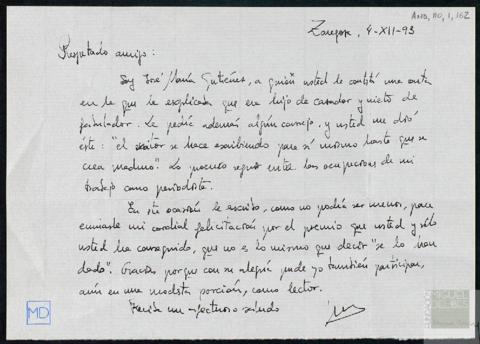 AMD, 110, 1, 162
Zaragoza, 4-XII-93
Respetado amigo:
Soy José María Gutiérrez, a quien usted le contestó una carta
en la que le explicaba que era hijo de cazador y nieto de
. Le pedía además algún consejo, y usted me dio
éste: "el escritor se hace escribiendo para sí mismo hasta que se
crea maduro". Lo procuro seguir entre las ocupaciones de mi
trabajo como periodista.
En esta ocasión le escribo, como no podía ser menos, para
enviarle mi cordial felicitación por el premio que usted y sólo
usted ha conseguido, que no es lo mismo que decir "se lo han
dado". Gracias porque con su alegría pude yo también participar,
aún en una modesta porción, como lector.
Reciba un afectuoso saludo
MD